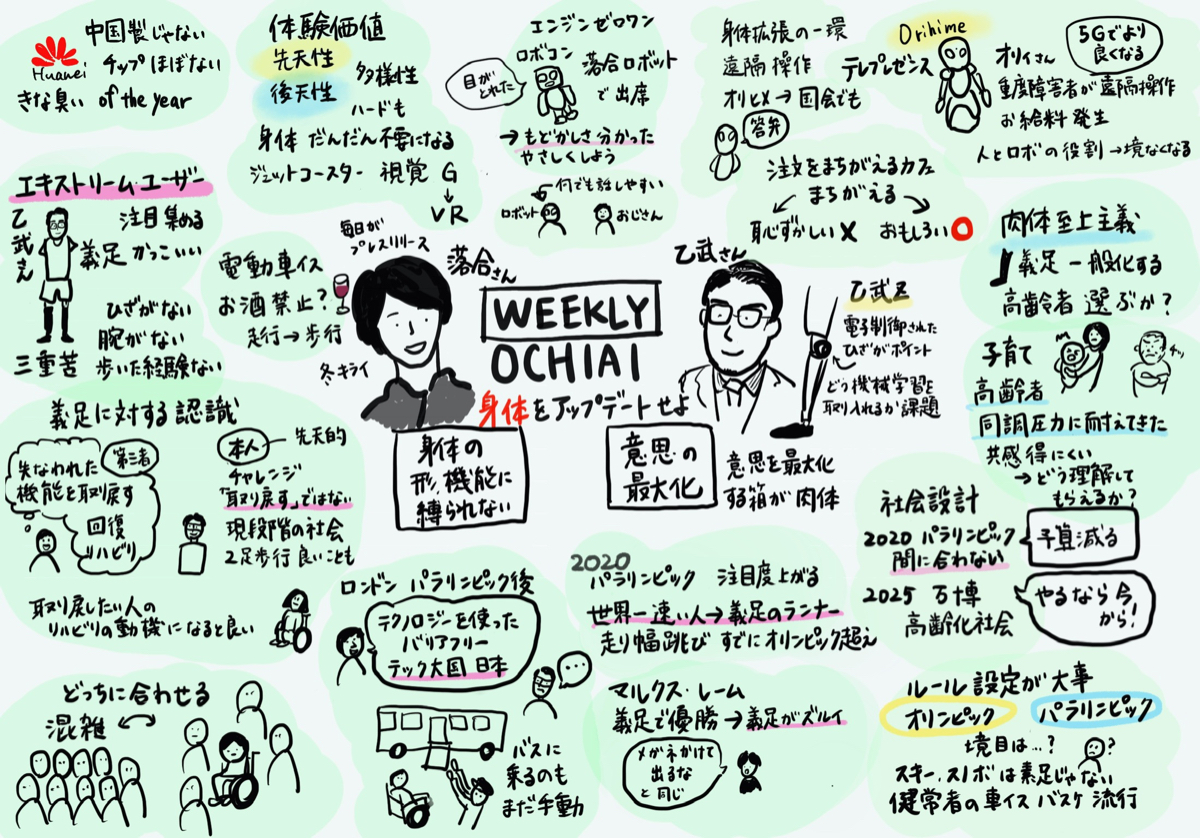 Huawei
中国製じゃない
チップ ほぼない
きな臭い of the year
体験価値
先天性
後天性
多様性
ハードも
身体 だんだん不要になる
ジェットコースター 視覚 G
VR
エンジンゼロワン
ロボコン 落合ロボット
で出席
目が
とれた
→もどかしさ分かった
やさしくしよう
何でも話しやすい
ロボット
おじさん
身体拡張の一環
遠隔操作 テレプレゼンス
オリヒメ→国会でも
答弁
注文をまちがえるカフェ
まちがえる
恥ずかしい× おもしろい○
Orihime
オリィさん
5Gでより
良くなる
重度障害者が遠隔操作
お給料発生
人とロボの役割→境なくなる
エキストリーム・ユーザー
乙武さん
注目集める
義足 かっこいい
ひざがない
腕がない
三重苦 歩いた経験ない
電動車イス
お酒禁止?
走行→歩行
毎日が
プレスリリース
落合さん
冬キライ
WEEKLY
OCHIAI
身体をアップデートせよ
乙武さん
乙武足
電子制御された
ひざがポイント
どう機械学習を
取り入れるか課題
身体の
形、機能に
縛られない
意思の
最大化
意思を最大化
する箱が肉体
肉体至上主義
義足一般化する
高齢者 選ぶか?
子育て
チッ
高齢者
同調圧力に耐えてきた
共感得にくい
→どう理解して
もらえるか?
義足に対する認識
第三者
失なわれた
機能を取り戻す
回復
リハビリ
本人 先天的
チャレンジ
「取り戻す」ではない
現段階の社会
2足歩行 良いことも
取り戻したい人の
リハビリの動機になると良い
どっちに合わせる
混雑
ロンドン パラリンピック後
テクノロジーを使った
バリアフリー
テック大国 日本
バスに
乗るのも
まだ手動
2020
パラリンピック 注目度上がる
世界一速い人→義足のランナー
走り幅跳び すでにオリンピック超え
マルクス・レーム
義足で優勝→義足がズルイ
メガネかけて
出るな
と同じ
社会設計
2020 パラリンピック
間に合わない
予算減る
2025 万博
高齢化社会
やるなら今
から!
ルール設定が大事
オリンピック
パラリンピック
境目は…?
?
スキー、スノボは素足じゃない
健常者の車イスバスケ 流行